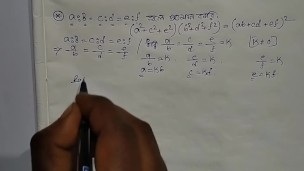 a:b = c:d = e:f হলে প্রমাণ করি,
(a²+c²+e²)(b²+d²+f²) = (ab+cd+ef)²
a:b = c:d = e:f
∵ a/b = c/d = e/f / a/b = c/d = e/f = K [K≠0]
a/b = K c/d = K e/f = K
a = Kb c = Kd e = Kf